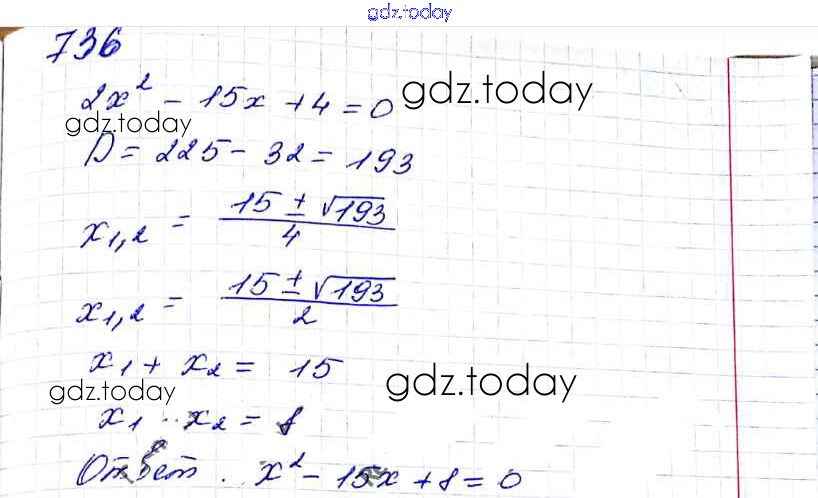 gdz.today
736
2x² - 15x + 4 = 0 gdz.today
gdz.today
D = 225 - 32 = 193
x₁,₂ = (15 ± √193)/4
x₁,₂ = (15 ± √193)/2
x₁ + x₂ = 15
gdz.today gdz.today
x₁ · x₂ = 8
Ответ. x² - 15x + 8 = 0